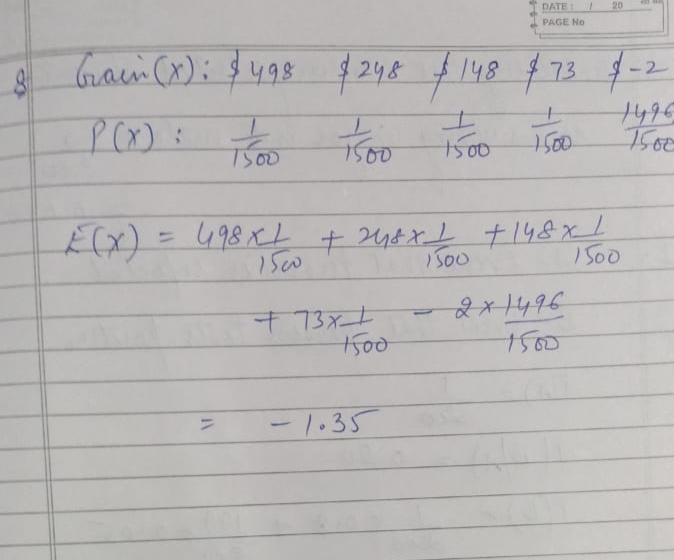 DATE: / 20
PAGE No
8 Gain(X): $498 $248 $148 $73 $-2
P(X): 1/1500 1/1500 1/1500 1/1500 1496/1500
E(X) = 498×1/1500 + 248×1/1500 + 148×1/1500
+ 73×1/1500 - 2×1496/1500
= -1.35